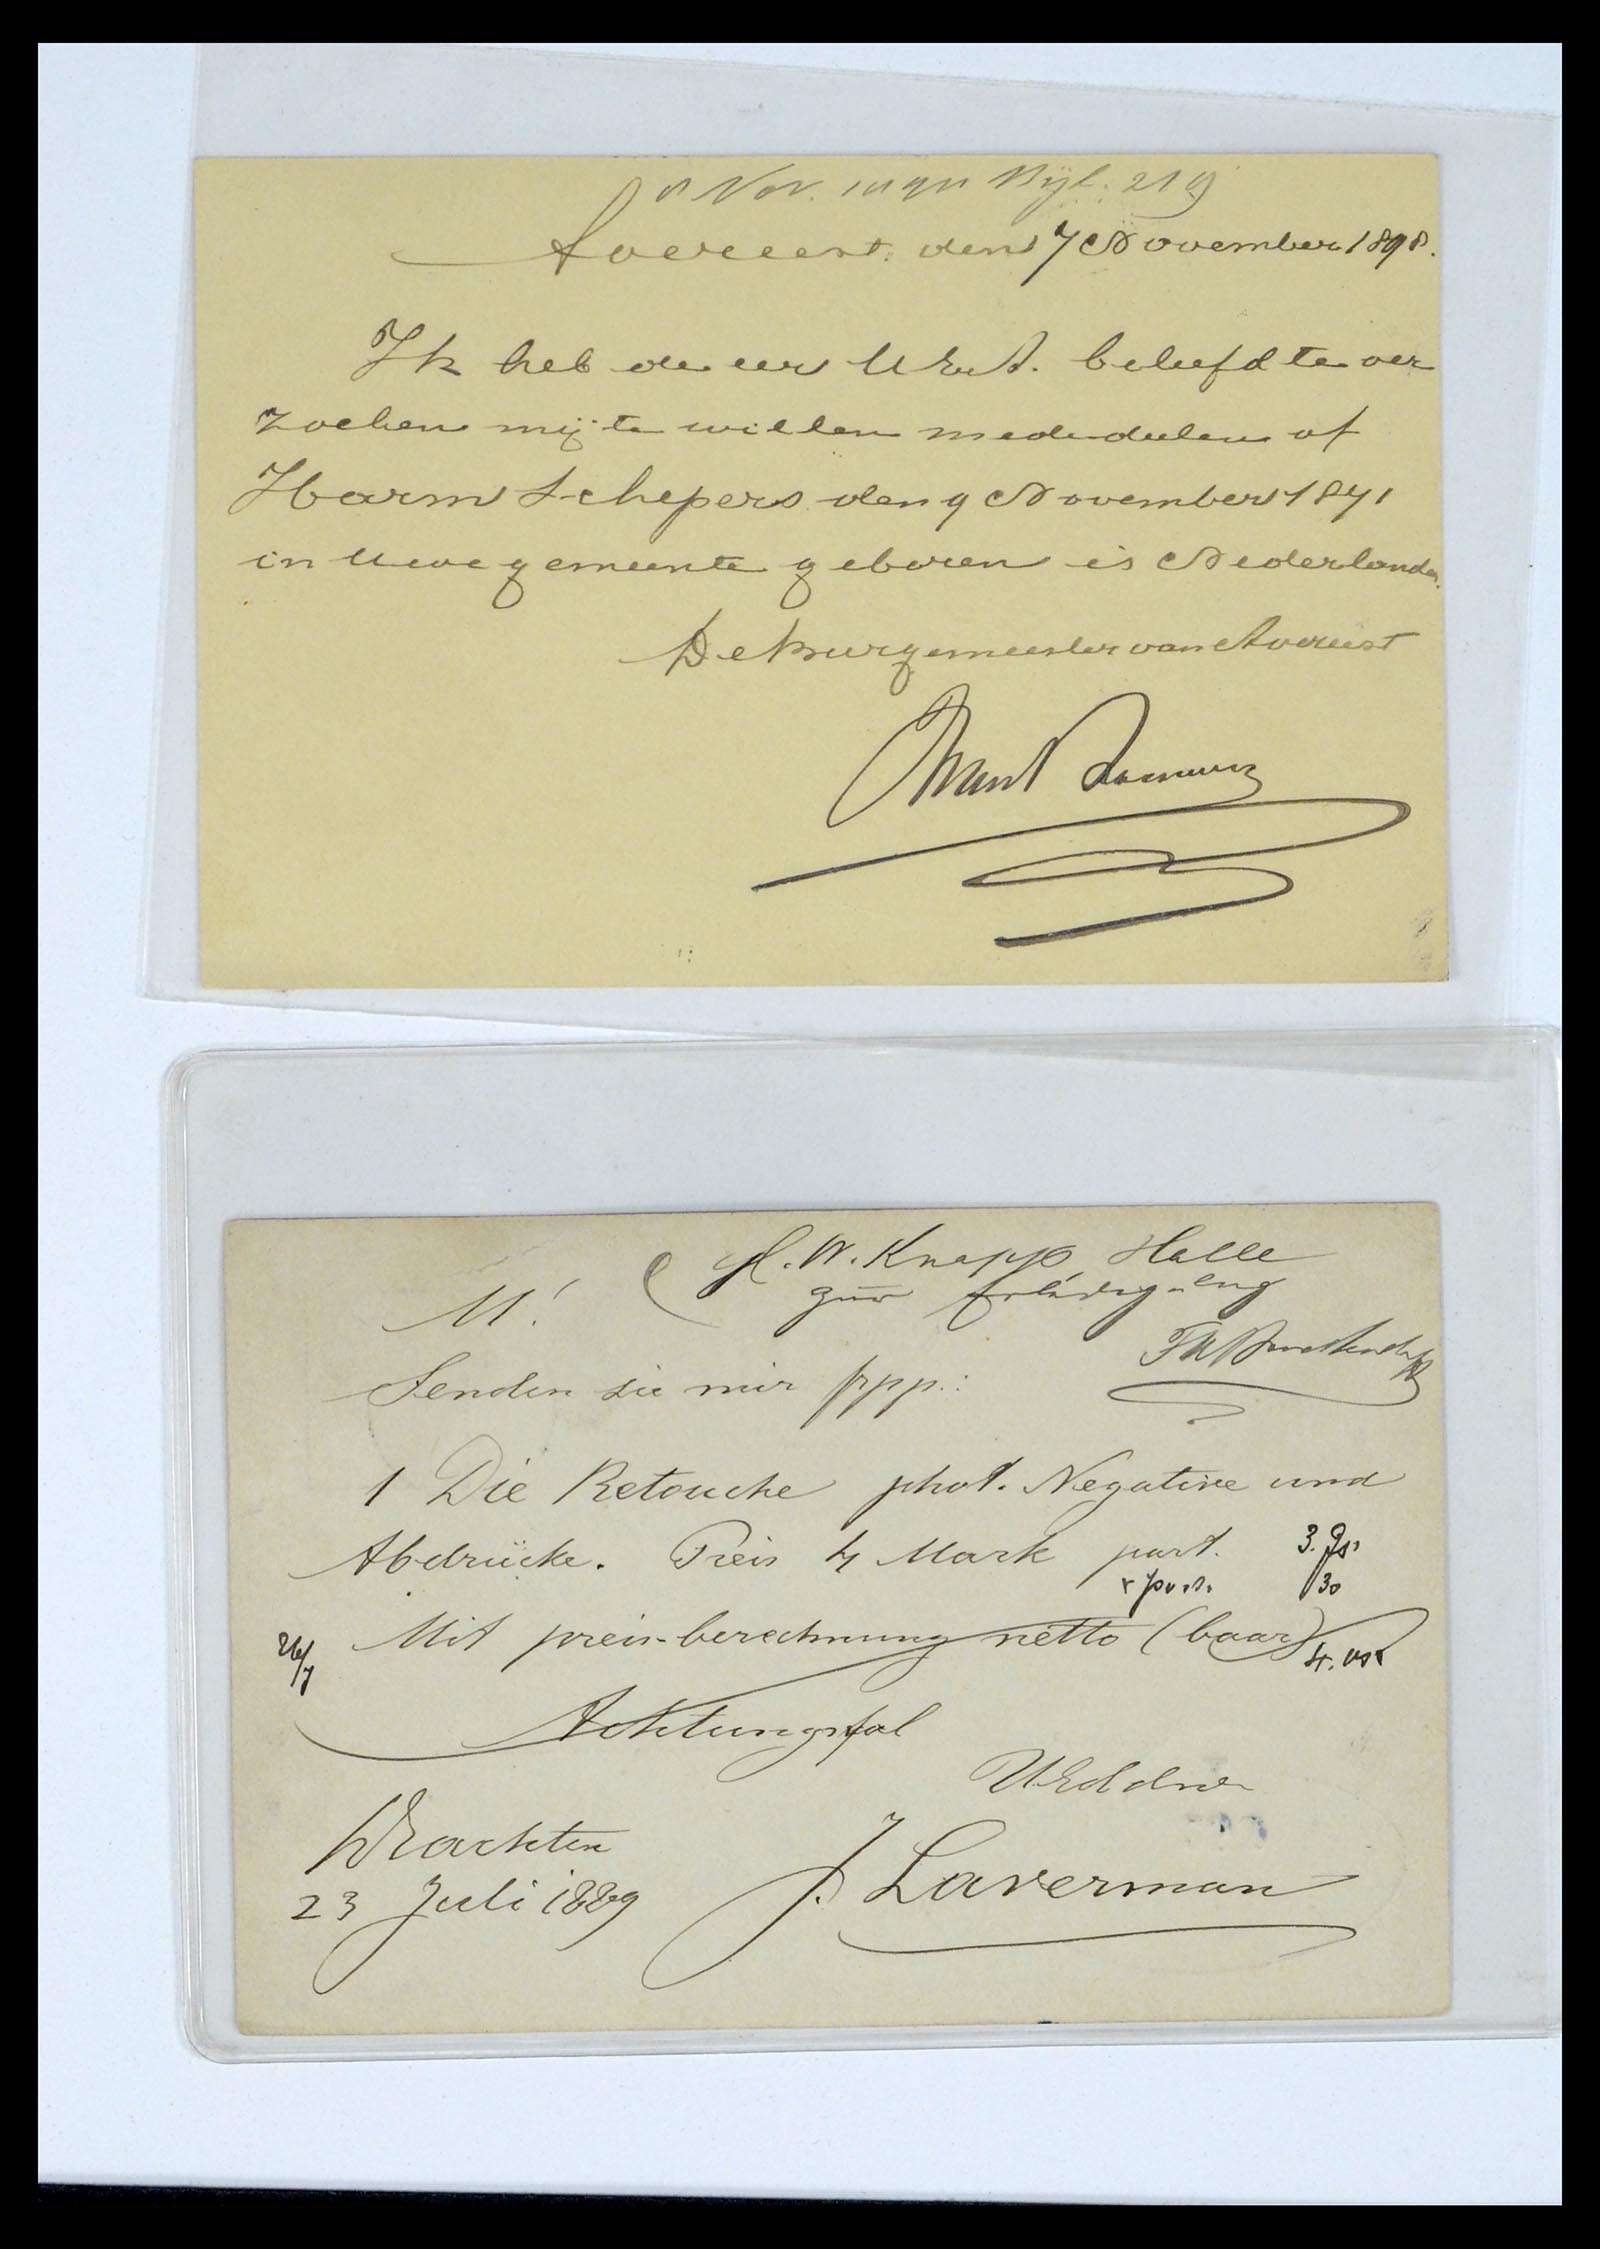 8 Nov. 1898 Bijl. 219
Avereest. den 7 November 1898.
Ik heb de eer U EdA. beleefd te ver
zoeken mij te willen mededeelen of
Harm Schepers den 9 November 1871
in Uwe gemeente geboren is Nederlander.
De burgemeester van Avereest
H. W. Knapp, Halle
zur Erledigung
M!
Senden sie mir fr pp.:
1 Die Retouche phot. Negative und
Abdrücke. Preis 4 Mark part.
3.
+ Port. 30
Mit preis-berechnung netto (baar)
26/7
Achtungsfol
UEd dnr
Drachten
23 Juli 1889
J. Laverman